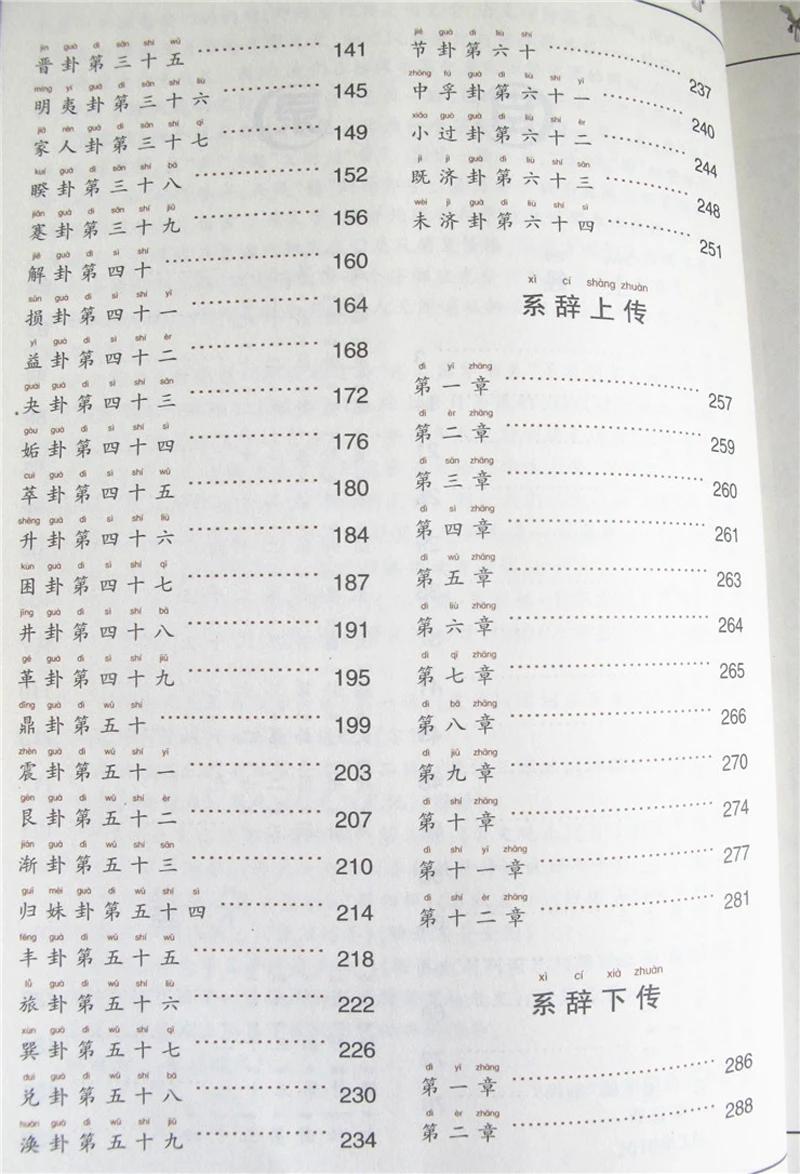 jìn guà dì sān shí wǔ
晋卦第三十五 141
míng yí guà dì sān shí liù
明夷卦第三十六 145
jiā rén guà dì sān shí qī
家人卦第三十七 149
kuí guà dì sān shí bā
睽卦第三十八 152
jiǎn guà dì sān shí jiǔ
蹇卦第三十九 156
jiě guà dì sì shí
解卦第四十 160
sǔn guà dì sì shí yī
损卦第四十一 164
yì guà dì sì shí èr
益卦第四十二 168
guài guà dì sì shí sān
夬卦第四十三 172
gòu guà dì sì shí sì
姤卦第四十四 176
cuì guà dì sì shí wǔ
萃卦第四十五 180
shēng guà dì sì shí liù
升卦第四十六 184
kùn guà dì sì shí qī
困卦第四十七 187
jǐng guà dì sì shí bā
井卦第四十八 191
gé guà dì sì shí jiǔ
革卦第四十九 195
dǐng guà dì wǔ shí
鼎卦第五十 199
zhèn guà dì wǔ shí yī
震卦第五十一 203
gèn guà dì wǔ shí èr
艮卦第五十二 207
jiàn guà dì wǔ shí sān
渐卦第五十三 210
guī mèi guà dì wǔ shí sì
归妹卦第五十四 214
fēng guà dì wǔ shí wǔ
丰卦第五十五 218
lǚ guà dì wǔ shí liù
旅卦第五十六 222
xùn guà dì wǔ shí qī
巽卦第五十七 226
duì guà dì wǔ shí bā
兑卦第五十八 230
huàn guà dì wǔ shí jiǔ
涣卦第五十九 234
jié guà dì liù shí
节卦第六十 237
zhōng fú guà dì liù shí yī
中孚卦第六十一 240
xiǎo guò guà dì liù shí èr
小过卦第六十二 244
jì jì guà dì liù shí sān
既济卦第六十三 248
wèi jì guà dì liù shí sì
未济卦第六十四 251
xì cí shàng zhuàn
系辞上传
dì yī zhāng
第一章 257
dì èr zhāng
第二章 259
dì sān zhāng
第三章 260
dì sì zhāng
第四章 261
dì wǔ zhāng
第五章 263
dì liù zhāng
第六章 264
dì qī zhāng
第七章 265
dì bā zhāng
第八章 266
dì jiǔ zhāng
第九章 270
dì shí zhāng
第十章 274
dì shí yī zhāng
第十一章 277
dì shí èr zhāng
第十二章 281
xì cí xià zhuàn
系辞下传
dì yī zhāng
第一章 286
dì èr zhāng
第二章 288